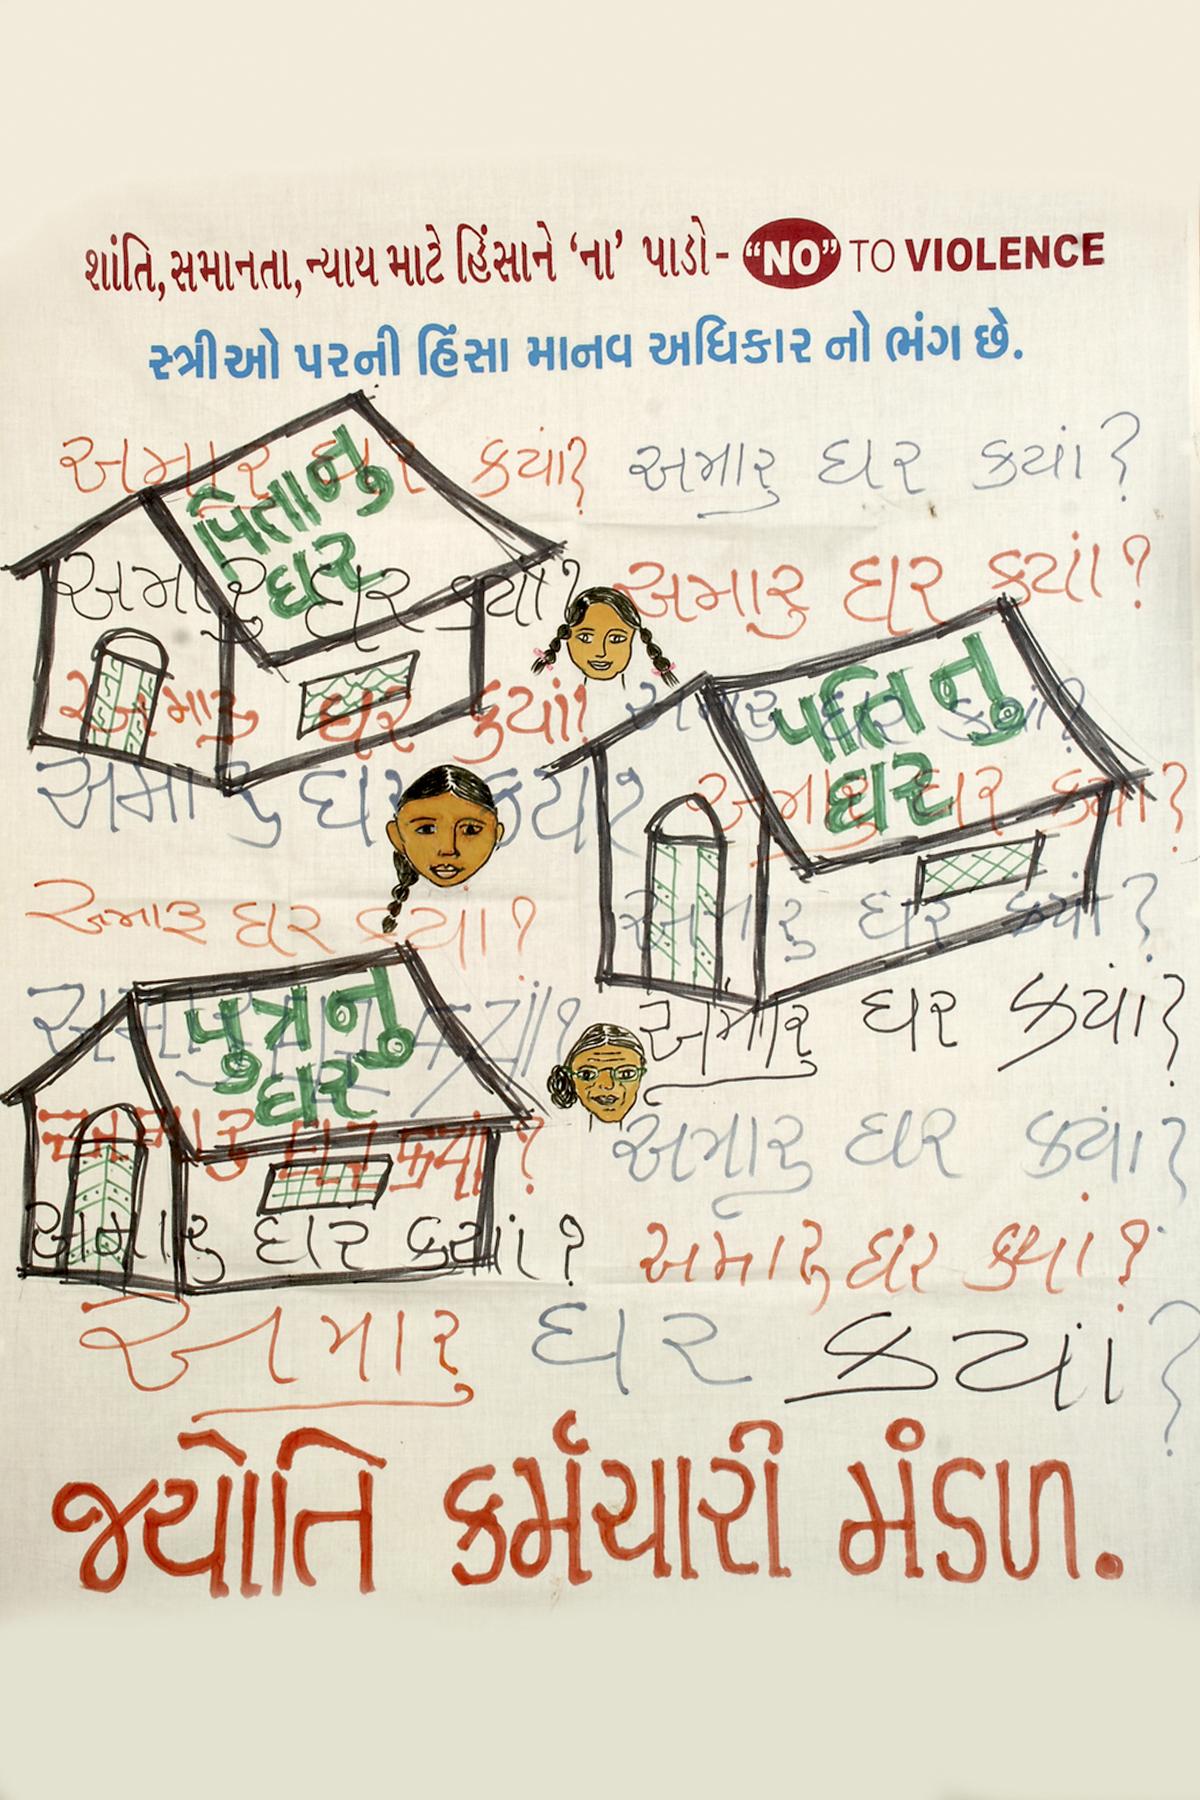 શાંતિ, સમાનતા, ન્યાય માટે હિંસાને ‘ના’ પાડો - “NO” TO VIOLENCE
સ્ત્રીઓ પરની હિંસા માનવ અધિકાર નો ભંગ છે.
અમારુ ઘર કયાં? અમારુ ઘર કયાં?
પિતાનુ
ઘર
અમારુ ઘર કયાં? અમારુ ઘર કયાં?
અમારુ ઘર કુયાં? અમારુ ઘર કયાં?
પતિ નુ
ઘર
અમારુ ઘર કયાં? અમારુ ઘર કયાં?
અમારૂ ઘર કયાં? અમારુ ઘર કયાં?
અમારુ ઘર કયાં? અમારુ ઘર કયાં?
પુત્ર નુ
ઘર
અમારુ ઘર કયાં? અમારુ ઘર કયાં?
અમારુ ઘર કયાં? અમારુ ઘર કયાં?
અમારુ ઘર કયાં?
જ્યોતિ કર્મચારી મંડળ.